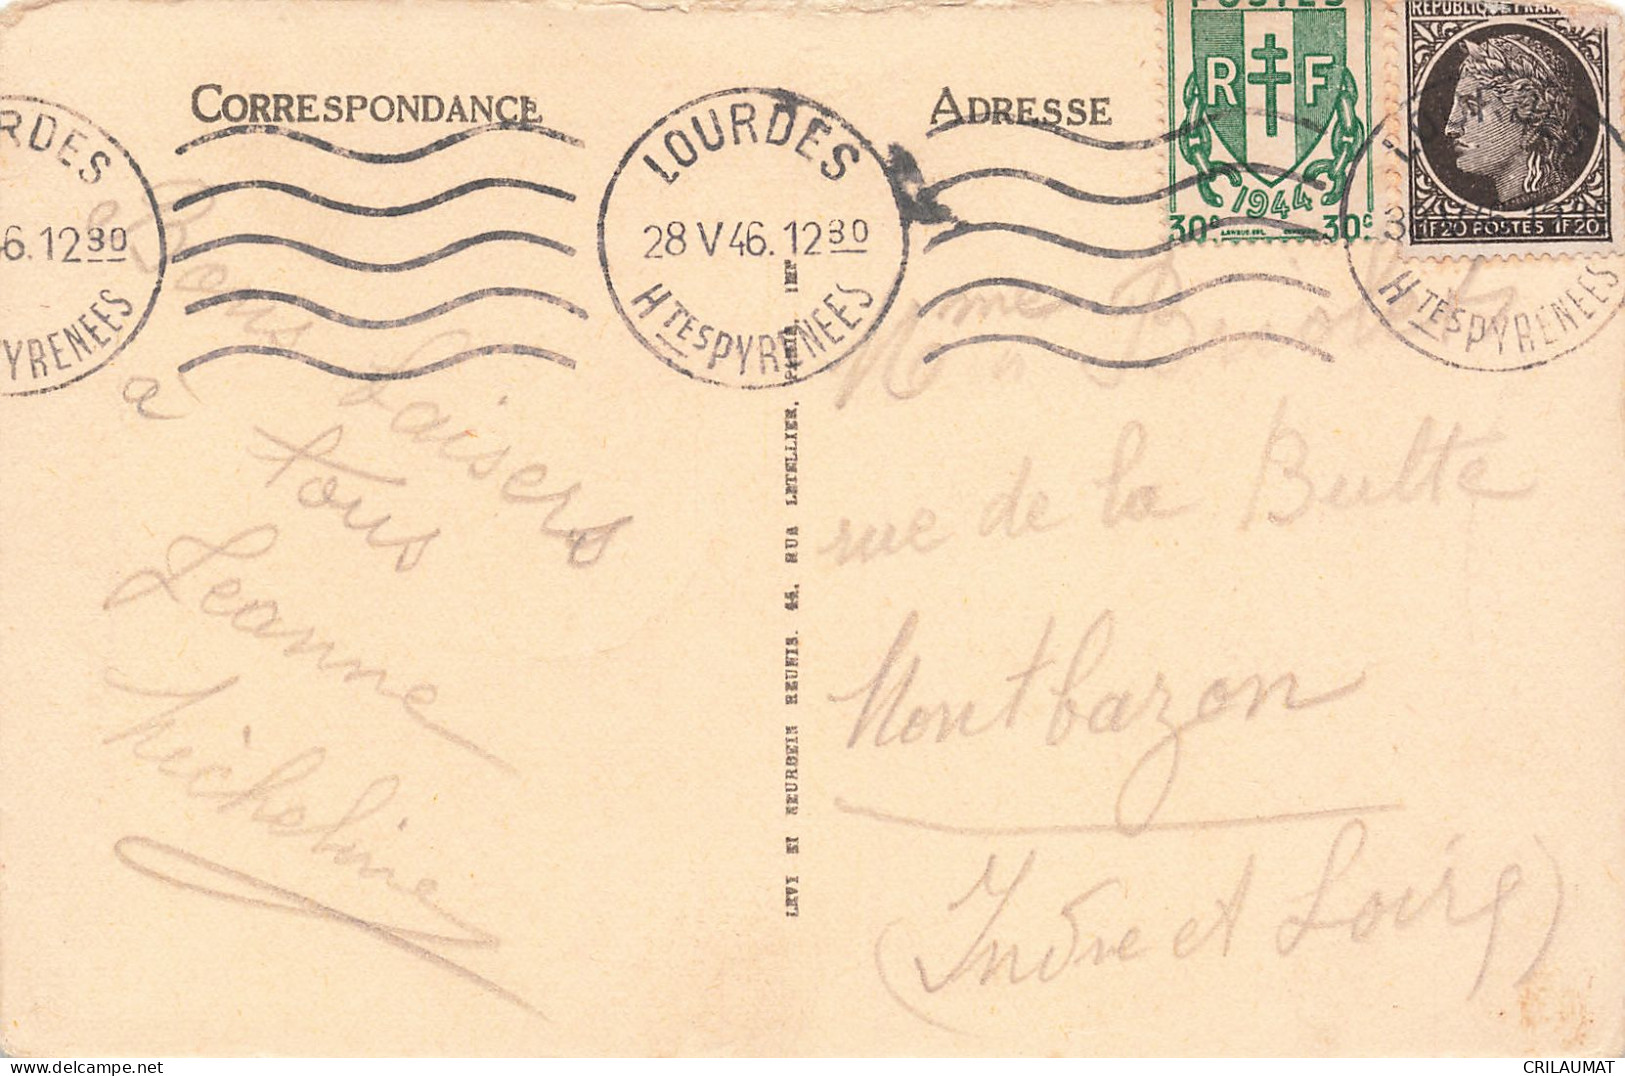 CORRESPONDANCE
ADRESSE
POSTES
RF
1944
30c 30c
REPUBLIQUE FRAN
1F20 POSTES 1F20
RDES
6.1230
PYRENEES
LOURDES
28 V 46.1230
HTES PYRENEES
HTES PYRENEES
Bons baisers
à tous
Jeanne
Micheline
LEVY ET NEURDEIN REUNIS. 44. RUA LETELLIER. PARIS. IMP
Mme
rue de la Butte
Montbazon
(Indre et Loire)
CRILAUMAT